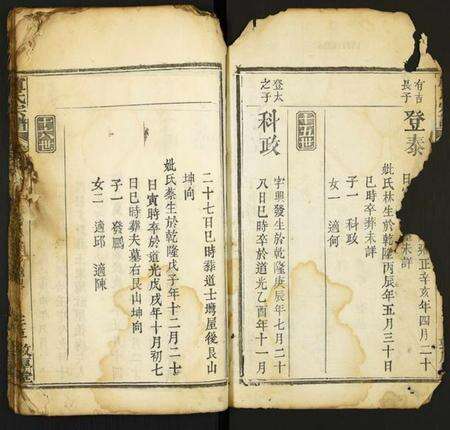 有吉
長子
登泰
正辛亥年四月二十
未詳
妣氏林生於乾隆丙辰年五月三十日
巳時卒葬未詳
子一 科政
女一 適何
十五世
登太
之子
科政
字興發生於乾隆庚辰年七月二十
八日巳時卒於道光乙酉年十一月
二十七日巳時葬道士塆屋後艮山
坤向
妣氏秦生於乾隆戊子年十二月二十
日寅時卒於道光戊戌年十月初七
日巳時葬夫墓右艮山坤向
子一 發鵬
女二 適邱 適陳
十六世